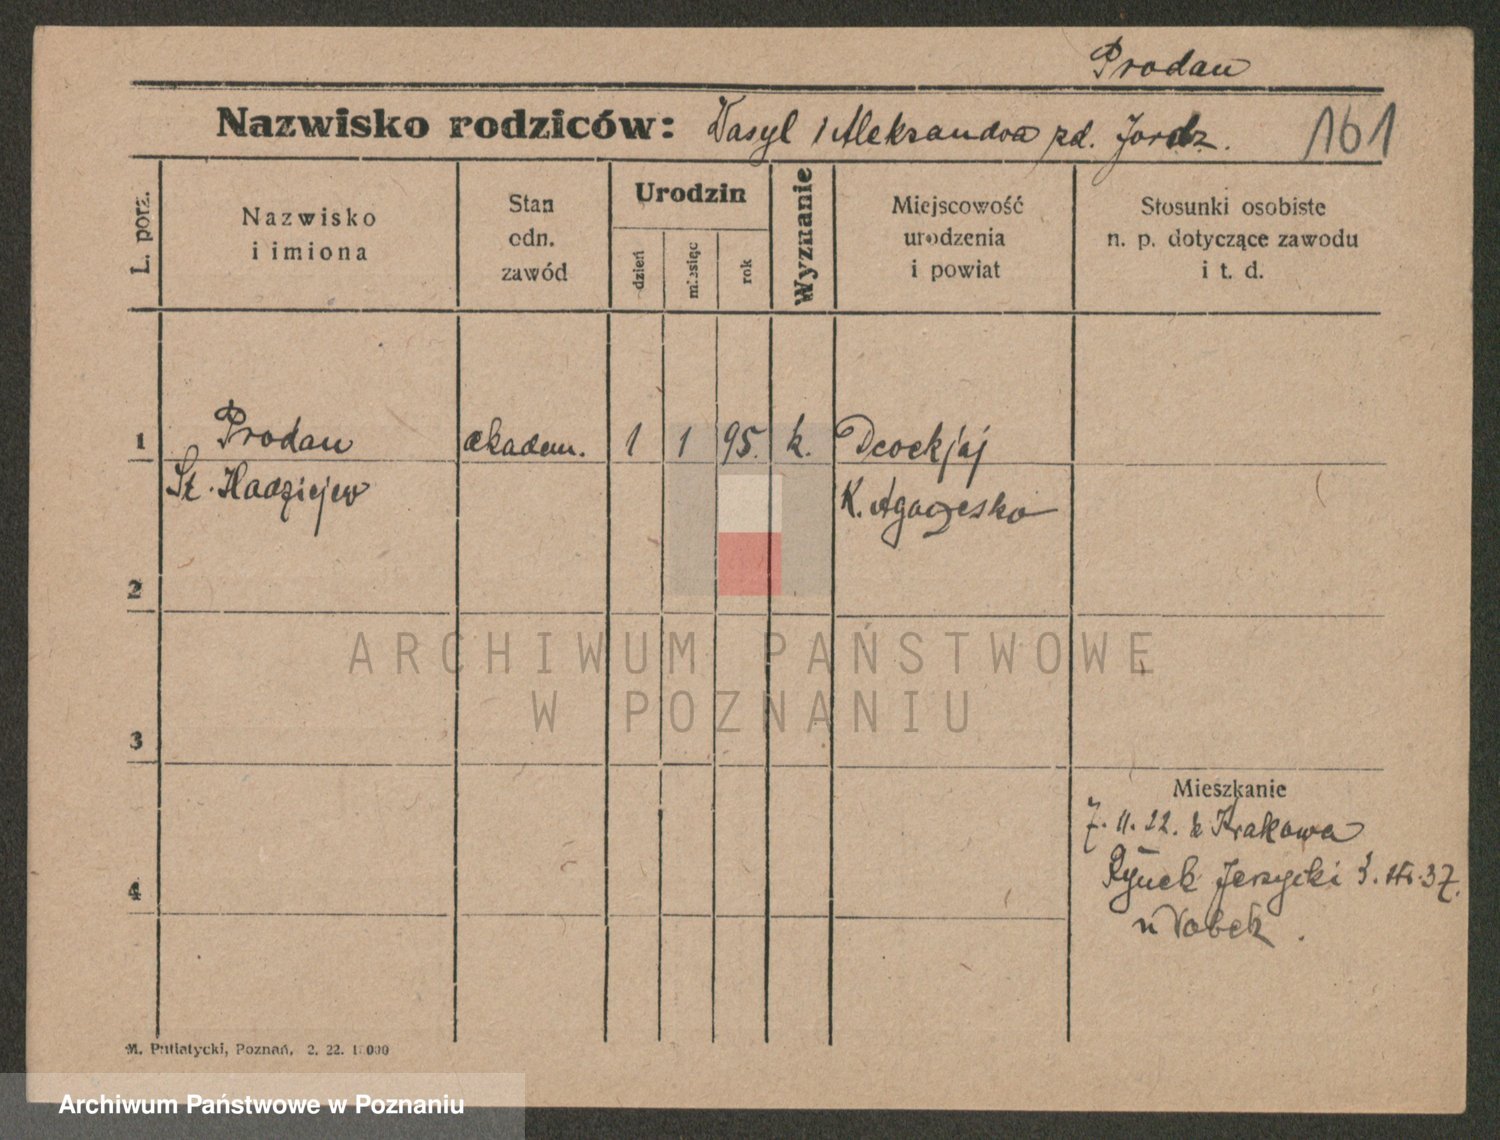 Prodan
Nazwisko rodziców: Wasyl i Aleksandra zd. 161
L. porz.
Nazwisko
i imiona
Stan
odn.
zawód
Urodzin
dzień
miesiąc
rok
Wyznanie
Miejscowość
urodzenia
i powiat
Stosunki osobiste
n. p. dotyczące zawodu
i t. d.
1 Prodan akadem. 1 1 95. k.
K.
2
ARCHIWUM PAŃSTWOWE
W POZNANIU
3
Mieszkanie
7. 11. 22. z Krakowa
4 Rynek Jerzycki 3. 37.
u
M. Putiatycki, Poznań, 2. 22.
Archiwum Państwowe w Poznaniu